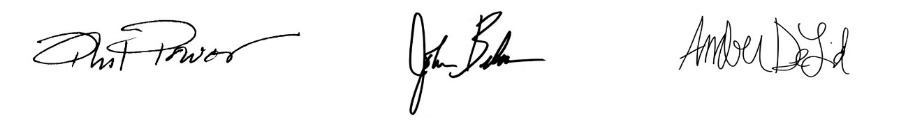 Phil Power John Amber DeLid